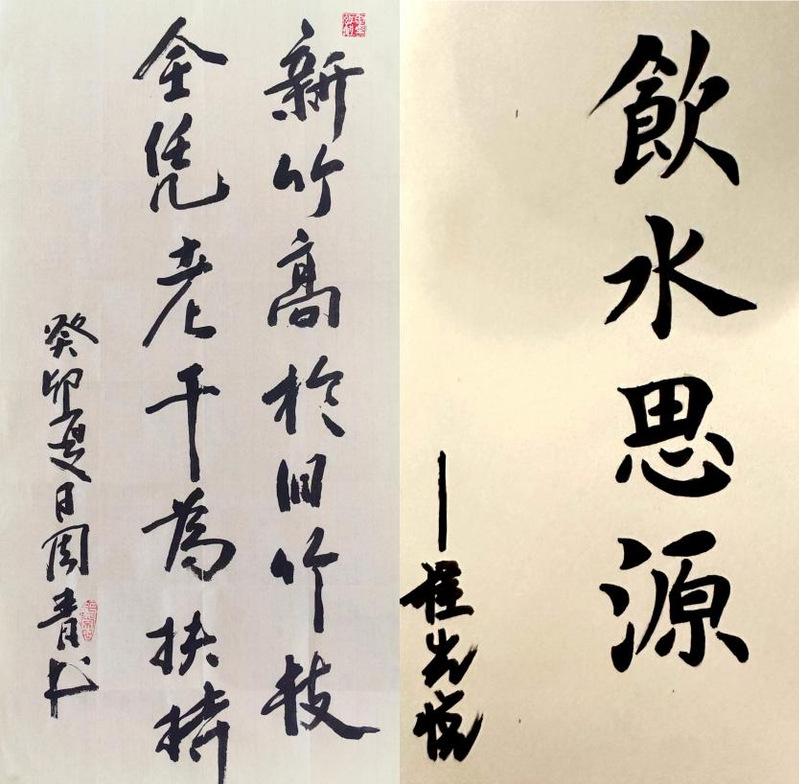 新竹高於旧竹枝
全凭老干為扶持
癸卯夏日周青书
飲水思源